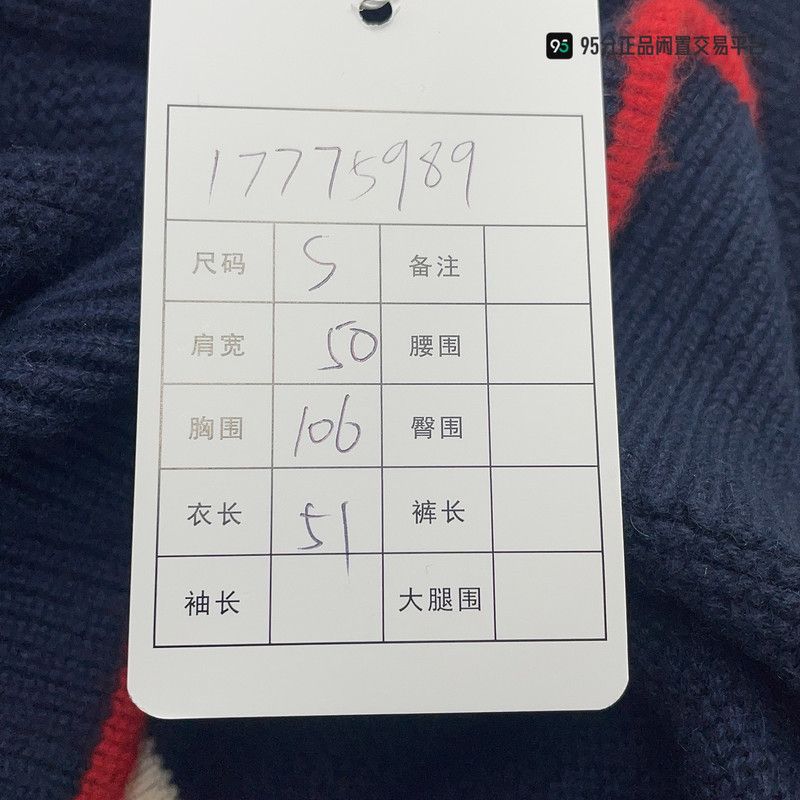 95 95分正品闲置交易平台
17775989
尺码 S 备注
肩宽 50 腰围
胸围 106 臀围
衣长 51 裤长
袖长 大腿围